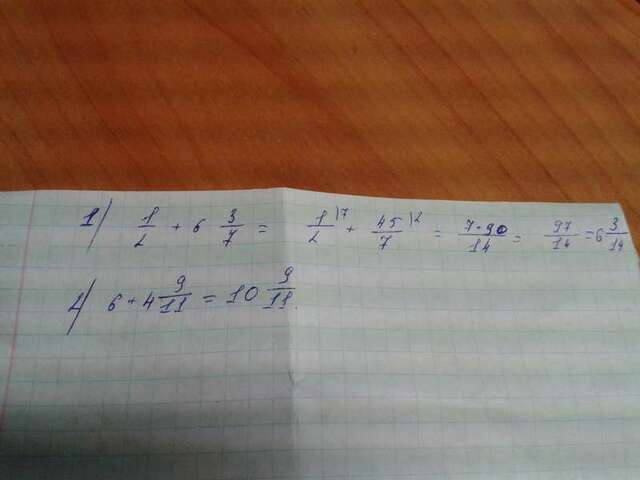 1) 1/2 + 6 3/7 = 1/2 \7 + 45/7 \2 = 7+90/14 = 97/14 = 6 3/14
2) 6 + 4 9/11 = 10 9/11.